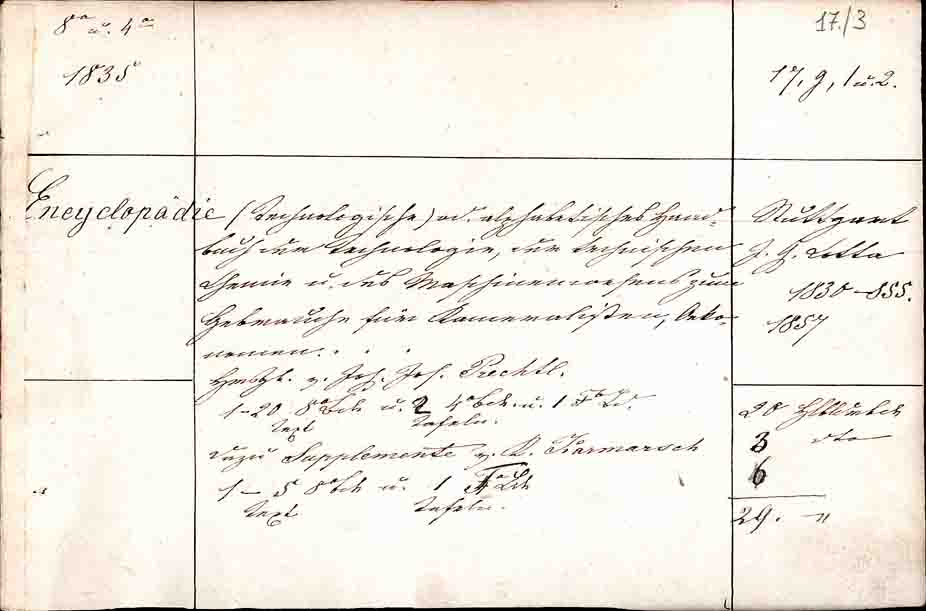 8° u. 4°
17./3
1835
17, g, 1 u. 2.
Encyclopädie (Technologische) od. alphabetisches Hand-
buch der Technologie, der technischen
Chemie u. des Maschinenwesens zum
Gebrauche für Kameralisten, Oeko-
nomen. . .
Hrsg. v. Joh. Jos. Prechtl.
1-20 8° Bde u. 2 4° Bde. u. 1 F° Bd.
Text Tafeln.
dazu Supplemente v. K. Karmarsch
1 - 5 8° Bde u. 1 F° Bd
Text Tafeln.
Stuttgart
J. G. Cotta
1830-855.
1857
20 Hlblwbde
3 dto
6
29. "